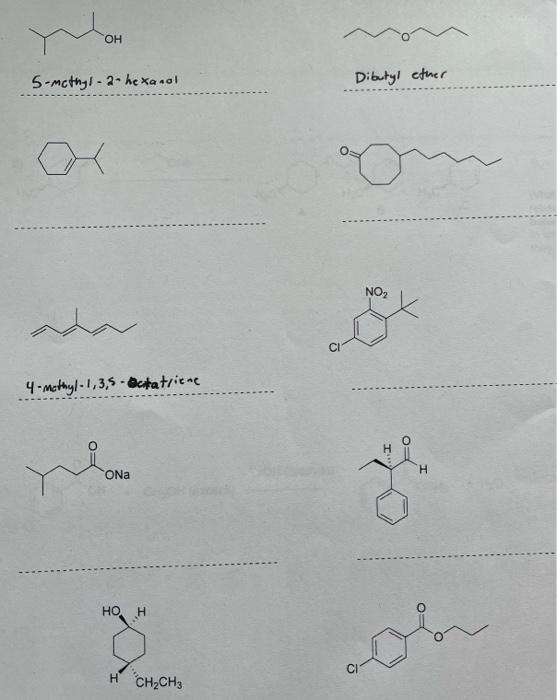 OH
O
5-methyl-2-hexanol
Dibutyl ether
O
NO2
Cl
4-methyl-1,3,5-octatriene
O
ONa
H
O
H
HO
H
H
CH2CH3
O
O
Cl